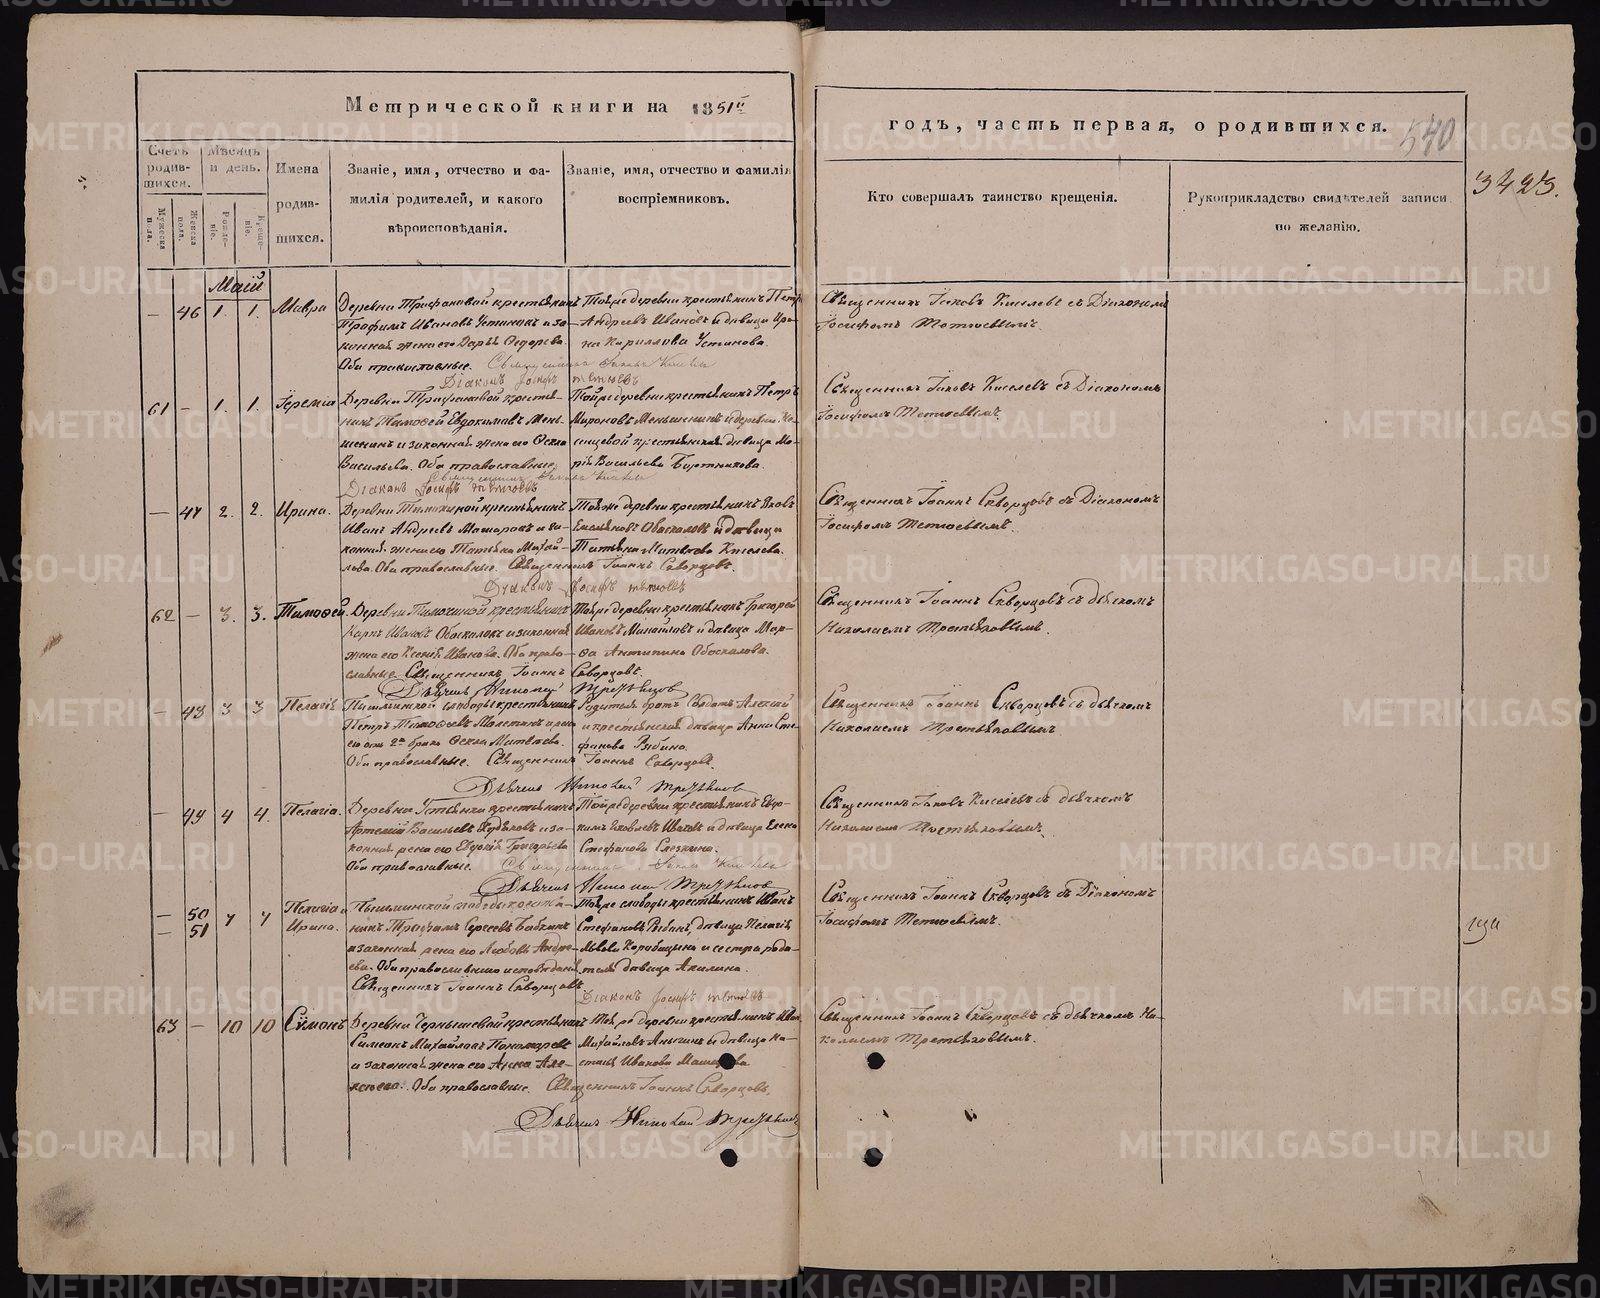 Метрической книги на 1851й
годъ, часть первая, о родившихся.
540
3423.
Счетъ родив- шихся.
Мужеска пола.
Женска пола.
Мѣсяцъ и день.
Рожде- ніе.
Креще- ніе.
Имена родив- шихся.
Званіе, имя, отчество и фа-
милія родителей, и какого
вѣроисповѣданія.
Званіе, имя, отчество и фамилія
воспріемниковъ.
Кто совершалъ таинство крещенія.
Рукоприкладство свидѣтелей записи
по желанію.
Маій
— 46 1. 1. Мавра
Деревни Трифановой крестьянинъ
Трофимъ Ивановъ Устиновъ и за-
конная жена его Дарья Ѳедорова.
Оба православные.
Діаконъ Іосифъ
Тойже деревни крестьянинъ Петръ
Андреевъ Ивановъ и дѣвица Ири-
на Кириллова Устинова.
Священникъ Іаковъ Киселевъ съ Діакономъ
Іосифомъ
61 — 1. 1. Іеремія
Деревни Трифановой крестья-
нинъ Тимоѳей Евдокимовъ Мень-
шенинъ и законная жена его Ѳекла
Васильева. Оба православные.
Діаконъ Іосифъ
Тойже деревни крестьянинъ Петръ
Мироновъ Меньшенинъ и деревни
крестьянская дѣвица Ма-
рія Васильева
Священникъ Іаковъ Киселевъ съ Діакономъ
Іосифомъ
— 47 2. 2. Ирина.
Деревни крестьянинъ
Иванъ Андреевъ и за-
конная жена его Татьяна Михай-
лова. Оба православные. Священникъ Іоаннъ Скворцовъ.
Діаконъ Іосифъ
Тойже деревни крестьянинъ Яковъ
и дѣвица
Татьяна Матвѣева Киселева.
Священникъ Іоаннъ Скворцовъ съ Діакономъ
Іосифомъ
62 — 3. 3. Тимоѳей.
Деревни крестьянинъ
Карпъ Ивановъ и законная
жена его Ксенія Иванова. Оба право-
славные. Священникъ Іоаннъ Скворцовъ.
Дьячекъ Николай Третьяковъ
Тойже деревни крестьянинъ Григорей
Ивановъ Михайловъ и дѣвица Мар-
ѳа Антипина Обоскалова.
Священникъ Іоаннъ Скворцовъ съ дьячкомъ
Николаемъ Третьяковымъ.
— 48 3 3 Пелагія
Пышминской слободы крестьянинъ
Петръ Тимоѳеевъ и жена
его отъ 2го брака Ѳекла Матвѣева.
Оба православные. Священникъ Іоаннъ Скворцовъ.
Дьячекъ Николай Третьяковъ
Родителя братъ Солдатъ Алексѣй
и крестьянская дѣвица Анна Сте-
фанова Рябина.
Священникъ Іоаннъ Скворцовъ съ дьячкомъ
Николаемъ Третьяковымъ
— 49 4 4. Пелагія.
Деревни крестьянинъ
Артемій Васильевъ и за-
конная жена его Евдокія Григорьева
Оба православные.
Дьячекъ Николай Третьяковъ
Тойже деревни крестьянинъ Евдо-
кимъ Яковлевъ Ивановъ и дѣвица Елена
Стефанова
Священникъ Іаковъ Киселевъ съ дьячкомъ
Николаемъ Третьяковымъ.
— 50 7 7 Пелагія и
— 51 Ирина.
Пышминской слободы крестья-
нинъ Трофимъ Сергеевъ Бабкинъ
и законная жена его Любовь Андре-
ева. Оба православнаго исповѣданія
Священникъ Іоаннъ Скворцовъ
Діаконъ Іосифъ
Тойже слободы крестьянинъ Иванъ
Стефановъ Рябинъ, дѣвица Пелагія
Львова и сестра роди-
теля дѣвица Акилина.
Священникъ Іоаннъ Скворцовъ съ Діакономъ
Іосифомъ
63 — 10 10 Сѵмонъ
Деревни Чернышевой крестьянинъ
Симеонъ Михайловъ Пономаревъ
и законная жена его Анна Але-
ксѣева. Оба православные. Священникъ Іоаннъ Скворцовъ.
Дьячекъ Николай Третьяковъ
Тойже деревни крестьянинъ Иванъ
Михайловъ и дѣвица На-
стасья Иванова
Священникъ Іоаннъ Скворцовъ съ дьячкомъ Ни-
колаемъ Третьяковымъ.
METRIKI.GASO-URAL.RU